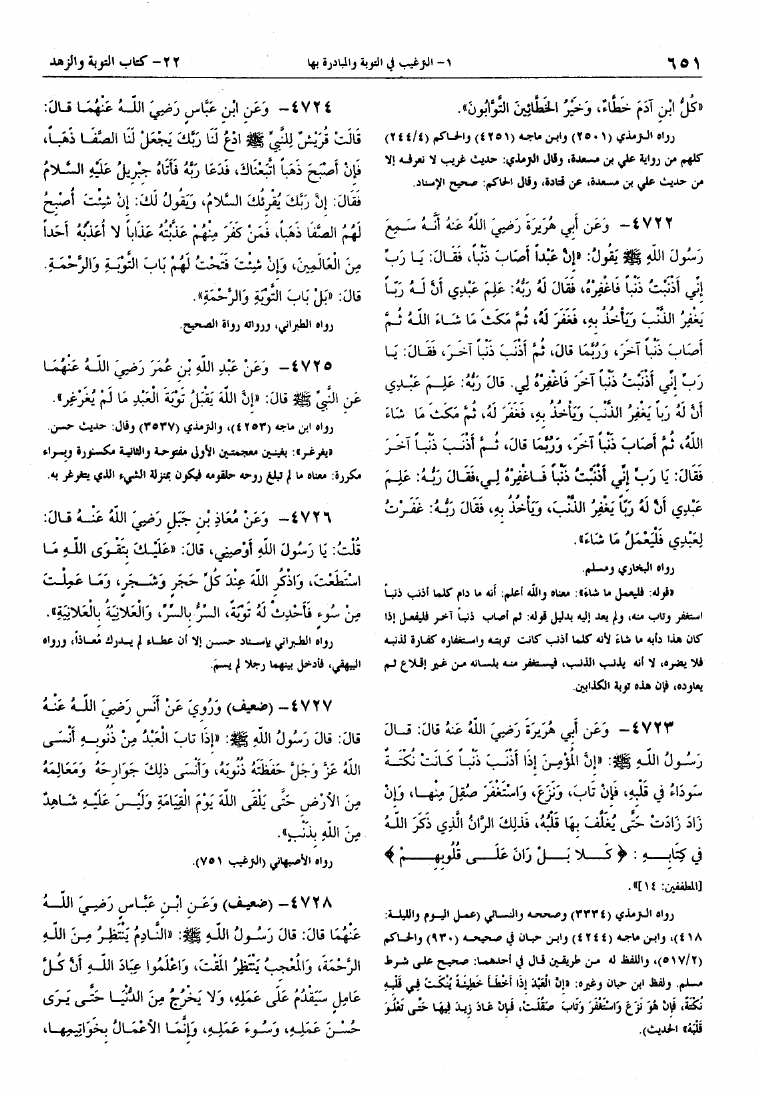 ٦٥١
١- الترغيب في التوبة والمبادرة بها
٢٢- كتاب التوبة والزهد
«كُلُّ ابْنِ آدَمَ خَطَّاءٌ، وَخَيْرُ الخَطَّائِينَ التَّوَّابُونَ».
رواه الترمذي (٢٥٠١) وابن ماجه (٤٢٥١) والحاكم (٢٤٤/٤)
كلهم من رواية علي بن مسعدة، وقال الترمذي: حديث غريب لا نعرفه إلا
من حديث علي بن مسعدة، عن قتادة، وقال الحاكم: صحيح الإسناد.
٤٧٢٢- وَعَن أبي هُرَيرَةَ رَضِيَ اللهُ عَنهُ أَنَّهُ سَمِعَ
رَسُولَ اللهِ ﷺ يَقُولُ: «إِنَّ عَبْداً أَصَابَ ذَنْباً، فَقَالَ: يَا رَبِّ
إِنِّي أَذْنَبْتُ ذَنْباً فَاغْفِرْهُ، فَقَالَ لَهُ رَبُّهُ: عَلِمَ عَبْدِي أَنَّ لَهُ رَبّاً
يَغْفِرُ الذَّنْبَ وَيَأْخُذُ بِهِ، فَغَفَرَ لَهُ، ثُمَّ مَكَثَ مَا شَاءَ اللهُ ثُمَّ
أَصَابَ ذَنْباً آخَرَ، وَرُبَّمَا قال، ثُمَّ أَذْنَبَ ذَنْباً آخَرَ، فَقَالَ: يَا
رَبِّ إِنِّي أَذْنَبْتُ ذَنْباً آخَرَ فَاغْفِرْهُ لِي. قال رَبُّهُ: عَلِمَ عَبْدِي
أَنَّ لَهُ رَباً يَغْفِرُ الذَّنْبَ وَيَأْخُذُ بِهِ، فَغَفَرَ لَهُ، ثُمَّ مَكَثَ مَا شَاءَ
اللهُ، ثُمَّ أَصَابَ ذَنْباً آخَرَ، وَرُبَّمَا قال، ثُمَّ أَذْنَبَ ذَنْباً آخَرَ
فَقَالَ: يَا رَبِّ إِنِّي أَذْنَبْتُ ذَنْباً فَاغْفِرْهُ لِي،فَقَالَ رَبُّهُ: عَلِمَ
عَبْدِي أَنَّ لَهُ رَبّاً يَغْفِرُ الذَّنْبَ، وَيَأْخُذُ بِهِ، فَقَالَ رَبُّهُ: غَفَرْتُ
لِعَبْدِي فَلْيَعْمَلْ مَا شَاءَ».
رواه البخاري ومسلم.
«قوله: فليعمل ما شاء»: معناه والله أعلم: أنه ما دام كلما أذنب ذنباً
استغفر وتاب منه، ولم يعد إليه بدليل قوله: ثم أصاب ذنباً آخر فليفعل إذا
كان هذا دأبه ما شاءَ لأنه كلما أذنب كانت توبته واستغفاره كفارة لذنبه
فلا يضره، لا أنه يذنب الذنب، فيستغفر منه بلسانه من غير إقلاع ثم
يعاوده، فإن هذه توبة الكذابين.
٤٧٢٣- وَعَن أبي هُرَيرَةَ رَضِيَ اللهُ عَنهُ قالَ: قالَ
رَسُولُ اللهِ ﷺ: «إِنَّ المُؤْمِنَ إِذَا أَذْنَبَ ذَنْباً كَانَتْ نُكْتَةٌ
سَوْدَاءُ فِي قَلْبِهِ، فَإِنْ تَابَ، وَنَزَعَ، وَاسْتَغْفَرَ صُقِلَ مِنْهَا، وَإِنْ
زَادَ زَادَتْ حَتَّى يُغَلَّفَ بِهَا قَلْبُهُ، فَذلِكَ الرَّانُ الَّذِي ذَكَرَ اللهُ
فِي كِتَابِهِ: ﴿ كَلا بَلْ رَانَ عَلَى قُلُوبِهِمْ ﴾
[المطففين: ١٤]».
رواه الترمذي (٣٣٣٤) وصححه والنسائي (عمل اليوم والليلة:
٤١٨)، وابن ماجه (٤٢٤٤) وابن حبان في صحيحه (٩٣٠) والحاكم
(٥١٧/٢)، واللفظ له من طريقين قال في أحدهما: صحيح على شرط
مسلم. ولفظ ابن حبان وغيره: «إنَّ العَبْدَ إذَا أخْطَأَ خَطِيئَةً يُنْكَتُ فِي قَلْبِهِ
نُكْتَةٌ، فَإنْ هُوَ نَزَعَ وَاسْتَغْفَرَ وَتَابَ صَقُلَتْ، فَإنْ عَادَ زِيدَ فِيهَا حَتَّى تَعْلُوَ
قَلْبَهُ» الحديث).
٤٧٢٤- وَعَن ابنِ عَبَّاسٍ رَضِيَ اللهُ عَنْهُمَا قالَ:
قَالَت قُرَيْشٌ لِلنَّبيِّ ﷺ ادْعُ لَنَا رَبَّكَ يَجْعَلْ لَنَا الصَّفَا ذَهَباً،
فَإِنْ أَصْبَحَ ذَهَباً اتَّبَعْنَاكَ، فَدَعَا رَبَّهُ فَأَتَاهُ جِبْرِيلُ عَلَيْهِ السَّلامُ
فَقَالَ: إِنَّ رَبَّكَ يُقْرِئُكَ السَّلامُ، وَيَقُولُ لَكَ: إِنْ شِئْتَ أَصْبَحَ
لَهُم الصَّفَا ذَهَباً، فَمَنْ كَفَرَ مِنْهُمْ عَذَّبْتُهُ عَذَاباً لا أُعَذِّبُهُ أَحَداً
مِنَ الْعَالَمِينَ، وَإِنْ شِئْتَ فَتَحْتُ لَهُمْ بَابَ التَّوْبَةِ وَالرَّحْمَةِ.
قَالَ: «بَلْ بَابَ التَّوْبَةِ وَالرَّحْمَةِ».
رواه الطبراني، ورواته رواة الصحيح.
٤٧٢٥- وَعَنْ عَبْدِ اللهِ بنِ عُمَرَ رَضِيَ اللهُ عَنْهُمَا
عَنِ النَّبيِّ ﷺ قالَ: «إِنَّ اللَّهَ يَقْبَلُ تَوْبَةَ الْعَبْدِ مَا لَمْ يُغَرْغِرْ».
رواه ابن ماجه (٤٢٥٣)، والترمذي (٣٥٣٧) وقال: حديث حسن.
«يغرغر»: بغينين معجمتين الأولى مفتوحة والثانية مكسورة وبراء
مكررة: معناه ما لم تبلغ روحه حلقومه فيكون بمنزلة الشيء الذي يتغرغر به.
٤٧٢٦- وَعَنْ مُعَاذِ بنِ جَبَلٍ رَضِيَ اللهُ عَنهُ قالَ:
قُلْتُ: يَا رَسُولَ اللهِ أَوْصِنِي، قالَ: «عَلَيْكَ بِتَقْوَى اللهِ مَا
اسْتَطَعْتَ، وَاذْكُرِ اللهَ عِنْدَ كُلِّ حَجَرٍ وَشَجَرٍ، وَمَا عَمِلْتَ
مِنْ سُوءٍ فَأَحْدِثْ لَهُ تَوْبَةً، السِّرُّ بِالسِّرِّ، وَالْعَلانِيَةُ بِالْعَلانِيَةِ».
رواه الطبراني بإسناد حسن إلا أن عطاء لم يدرك مُعاذاً، ورواه
البيهقي، فأدخل بينهما رجلا لم يسمَّ.
٤٧٢٧- (ضعيف) وَرُوِيَ عَنْ أَنَسٍ رَضِيَ اللهُ عَنْهُ
قالَ: قالَ رَسُولُ اللهِ ﷺ: «إِذَا تَابَ الْعَبْدُ مِنْ ذُنُوبِهِ أَنْسَى
اللهُ عَزَّ وَجَلَّ حَفَظَتَهُ ذُنُوبَهُ، وَأَنْسَى ذلِكَ جَوَارِحَهُ وَمَعَالِمَهُ
مِنَ الأَرْضِ حَتَّى يَلْقَى اللهَ يَوْمَ الْقِيَامَةِ وَلَيْسَ عَلَيْهِ شَاهِدٌ
مِنَ اللهِ بِذَنْبٍ».
رواه الأصبهاني (الترغيب ٧٥١).
٤٧٢٨- (ضعيف) وَعَنِ ابْنِ عَبَّاسٍ رَضِيَ اللهُ
عَنْهُمَا قالَ: قالَ رَسُولُ اللهِ ﷺ: «النَّادِمُ يَنْتَظِرُ مِنَ اللهِ
الرَّحْمَةَ، وَالْمُعْجَبُ يَنْتَظِرُ المَقْتَ، وَاعْلَمُوا عِبَادَ اللهِ أَنَّ كُلَّ
عَامِلٍ سَيَقْدُمُ عَلَى عَمَلِهِ، وَلا يَخْرُجُ مِنَ الدُّنْيَا حَتَّى يَرَى
حُسْنَ عَمَلِهِ، وَسُوءَ عَمَلِهِ، وَإِنَّمَا الأَعْمَالُ بِخَوَاتِيمِهَا،